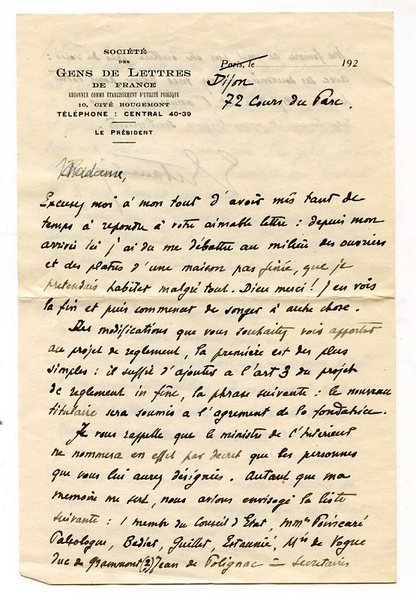 SOCIÉTÉ
DES
GENS DE LETTRES
DE FRANCE
RECONNUE COMME ÉTABLISSEMENT D'UTILITÉ PUBLIQUE
10, CITÉ ROUGEMONT
TÉLÉPHONE : CENTRAL 40-39
LE PRÉSIDENT
Paris, le 192
Dijon
72 Cours du Parc.
Madame,
Excusez moi à mon tout d'avoir mis tant de
temps a repondre à votre aimable lettre : depuis mon
arrivée ici j'ai du me débattre au milieu des ouvriers
et des platres d'une maison pas finie, que je
pretendais habiter malgré tout. Dieu merci ! j'en vois
la fin et puis commencer de songer à autre chose.
Des modifications que vous souhaitez voir apporter
au projet de reglement, la première est des plus
simples : il suffit d'ajouter a l'art 3 du projet
de reglement in fine, la phrase suivante : le nouveau
titulaire sera soumis a l'agrement de la fondatrice.
Je vous rappelle que le ministre de l'Interieur
ne nommera en effet par decret que les personnes
que vous lui aurez désignées. Autant que ma
memoire me sert, nous avions envisagé la liste
suivante : 1 membre du Conseil d'Etat, mme Poincaré
Paleologue, Bedier, Guillet, Estaunié, Mis de Vogue
Duc de Grammont (2) Jean de Polignac – Secretaires